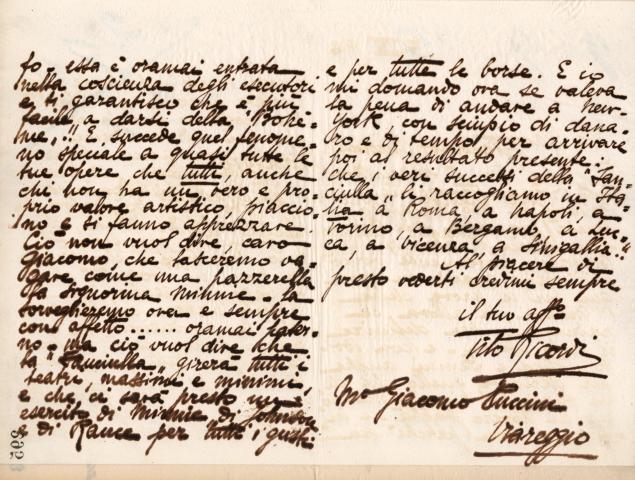 fo - essa è oramai entrata
nella coscienza degli esecutori
e ti garantisco che è più
facile a darsi della "Bohè-
me"!! E succede quel fenome-
no speciale a quasi tutte le
tue opere che tutti, anche
chi non ha un vero e pro-
prio valore artistico, piaccio-
no e si fanno apprezzare.
Ciò non vuol dire, caro
Giacomo, che lasceremo va-
gare come una pazzerella
la signorina Minnie - la
sorveglieremo ora e sempre
con affetto ...... oramai pater-
no - ma ciò vuol dire che
la "Fanciulla" girerà tutti i
teatri, massimi e minimi,
e che ci sarà presto un
esercito di Minnie di Johnson
e di Rance per tutti i gusti
e per tutte le borse. E io
mi domando ora se valeva
la pena di andare a New-
York, con scempio di dana-
ro e di tempo, per arrivare
poi al resultato presente:
che i veri successi della "Fan-
ciulla" li raccogliamo in Ita-
lia, a Roma, a Napoli, a
Torino, a Bergamo, a Luc-
ca, a Vicenza, a Sinigallia!!
Al piacere di
presto vederti credimi sempre
il tuo affo
Tito Ricordi
Mo Giacomo Puccini
Viareggio
395